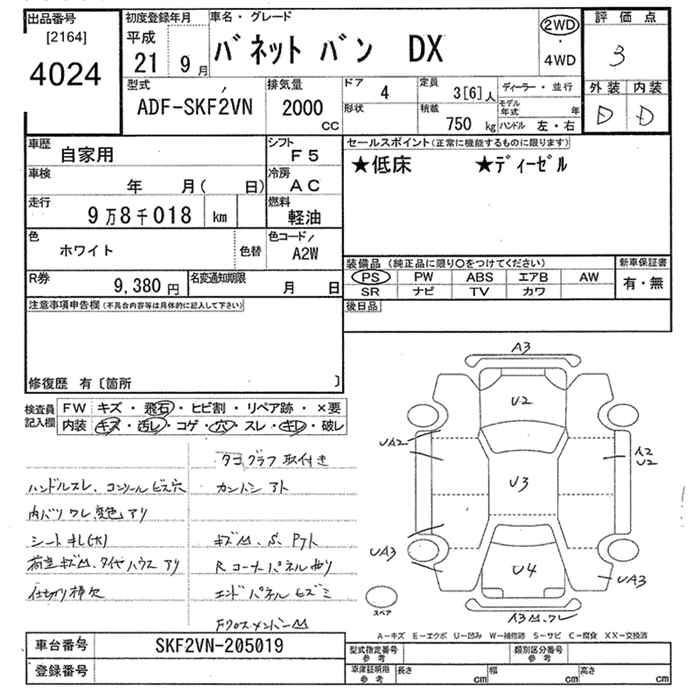 出品番号
[2164]
4024
初度登録年月
平成
21 9月
車名・グレード
バネット バン DX
2WD
・
4WD
評価点
3
型式
ADF-SKF2VN
排気量
2000
CC
ドア 4
形状
定員 3[6]人
積載 750 kg
ディーラー・並行
モデル年式 年
ハンドル 左・右
外装 内装
D D
車歴
自家用
シフト
F5
車検
年 月( 日)
冷房
AC
走行
9万8千018 km
燃料
軽油
色
ホワイト
色替
色コード/
A2W
R券
9,380円
名変通知期限
月 日
セールスポイント(正常に機能するものに限ります)
★低床 ★ディーゼル
装備品(純正品に限り○をつけてください)
PS PW ABS エアB AW
SR ナビ TV カワ
新車保証書
有・無
後日品
注意事項申告欄(不具合内容等は具体的に記入して下さい)
修復歴 有〔箇所 〕
検査員
記入欄
FW キズ・飛石・ヒビ割・リペア跡・×要
内装 キズ・汚レ・コゲ・穴・スレ・キレ・破レ
タコグラフ取付き
ハンドルスレ、コンソールビス穴
カンバン アト
内バリ ワレ 変色 アリ
シート キレ(大)
荷室キズ凹、タイヤハウス アリ
R コーナーパネル曲り
仕切り棒欠
エンドパネル ヒズミ
Fクロスメンバー凹
A3
U2
UA2
A2
U2
U3
UA3
U4
UA3
A3凹、ワレ
スペア
A－キズ E－エクボ U－凹み W－補修跡 S－サビ C－腐食 XX－交換済
車台番号
SKF2VN-205019
登録番号
型式指定番号
参考
類別区分番号
参考
車庫証明用
参考
長さ cm 幅 cm 高さ cm